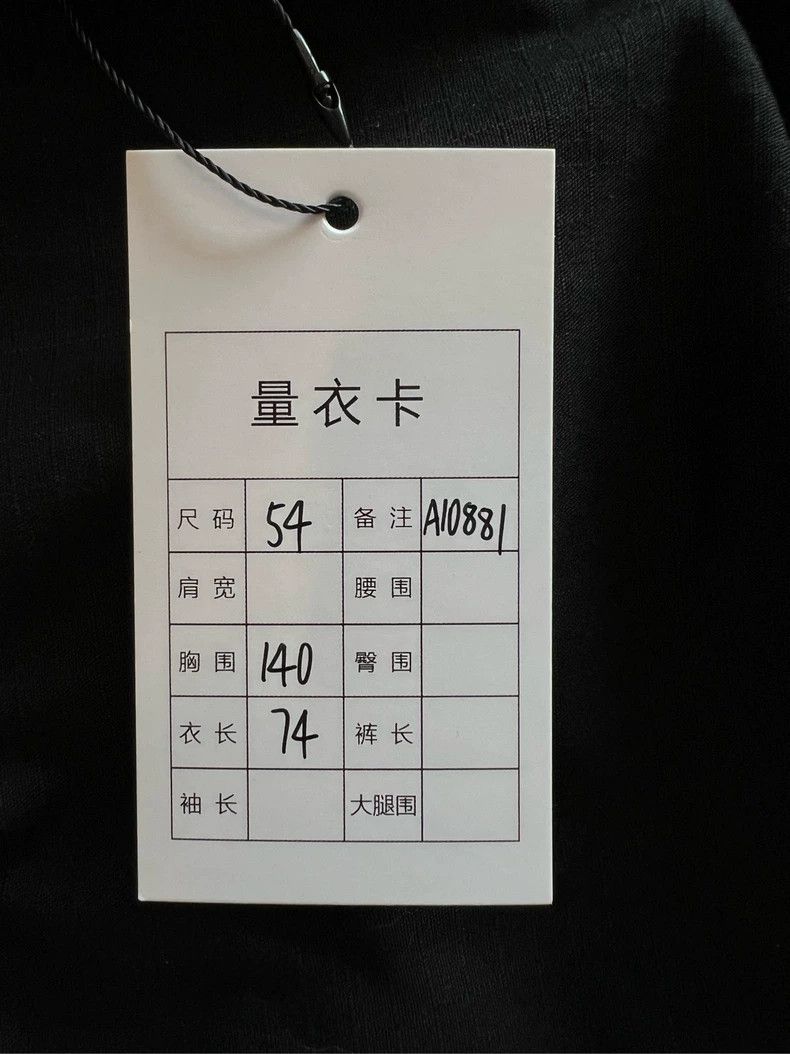 量衣卡
尺码 54 备注 A10881
肩宽 腰围
胸围 140 臀围
衣长 74 裤长
袖长 大腿围